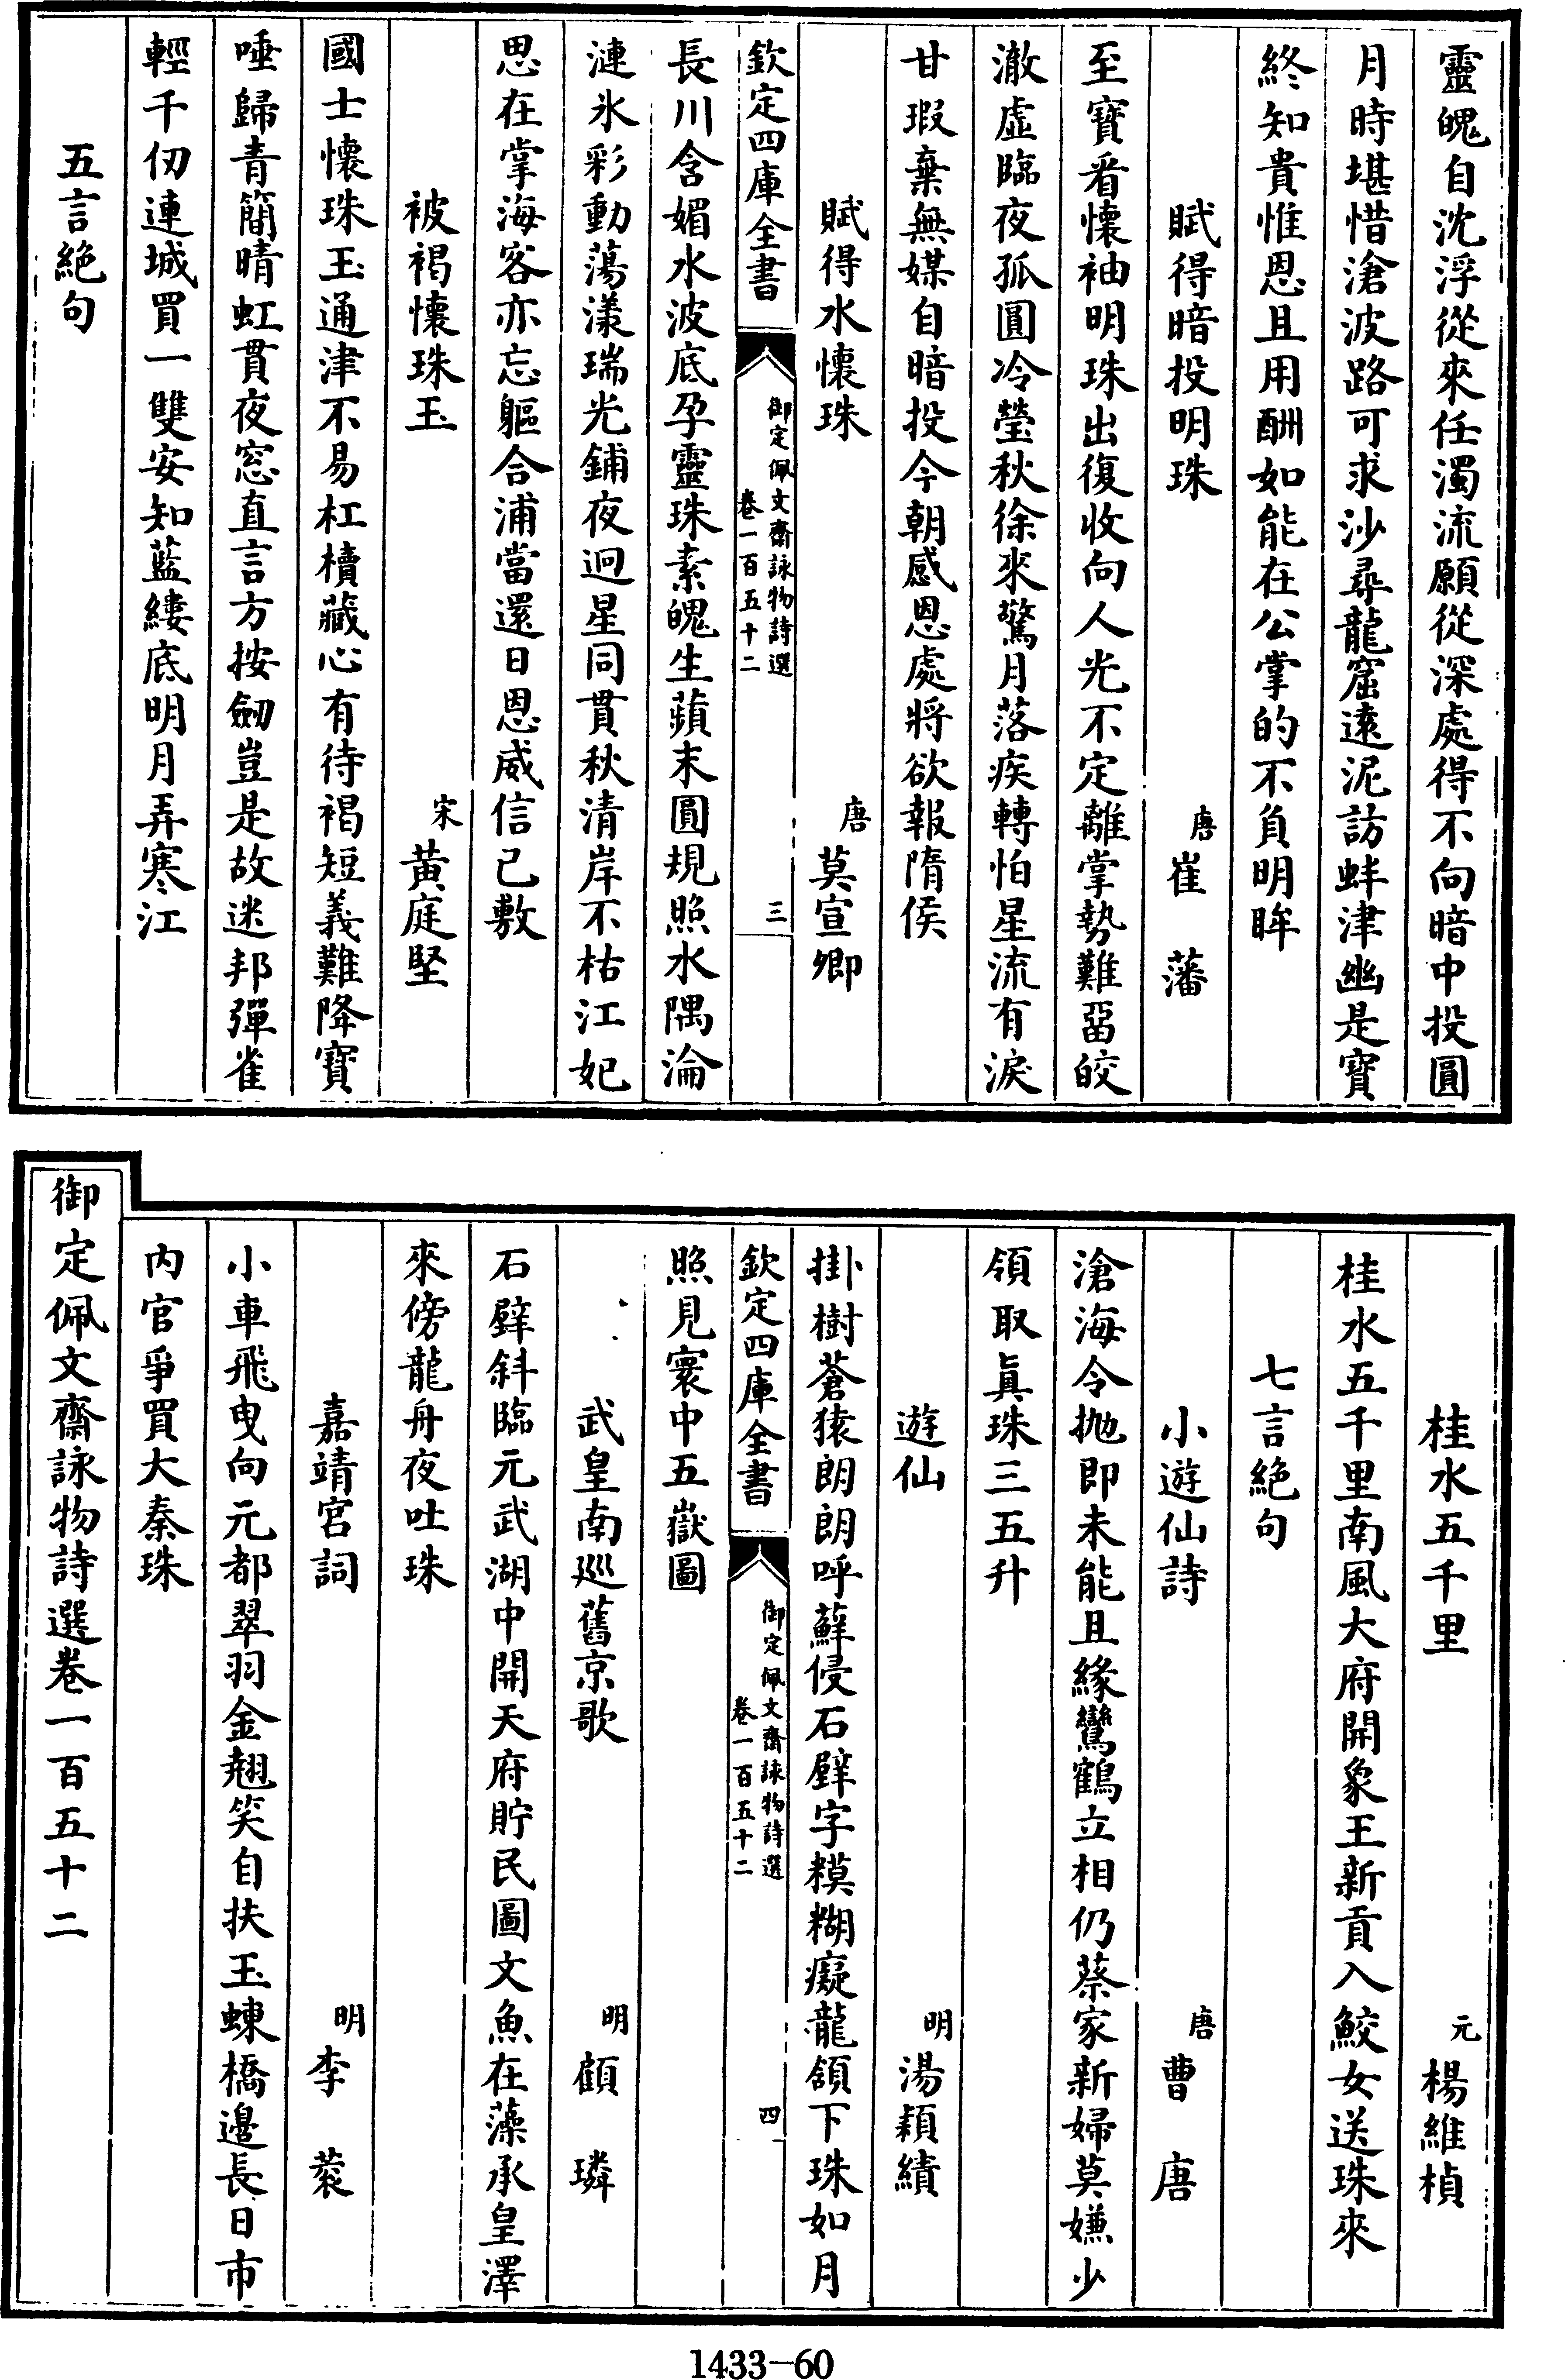 靈魄自沈浮從來任濁流願從深處得不向暗中投圓
月時堪惜滄波路可求沙尋龍窟遠泥訪蚌津幽是寳
終知貴惟恩且用酬如能在公掌的不負明眸
賦得暗投明珠 唐 崔藩
至寳看懷袖明珠出復收向人光不定離掌勢難留皎
澈虚臨夜孤圓冷瑩秋徐來驚月落疾轉怕星流有淚
甘瑕棄無媒自暗投今朝感恩處將欲報隋侯
賦得水懷珠 唐 莫宣卿
欽定四庫全書 御定佩文齋詠物詩選 卷一百五十二 三
長川含媚水波底孕靈珠素魄生蘋末圓規照水隅淪
漣氷彩動蕩漾瑞光鋪夜迥星同貫秋清岸不枯江妃
思在掌海客亦忘軀合浦當還日恩威信已敷
被褐懷珠玉 宋 黄庭堅
國士懷珠玉通津不易杠櫝藏心有待褐短義難降寳
唾歸青簡晴虹貫夜窓直言方按劒豈是故迷邦彈雀
輕千仞連城買一雙安知藍縷底明月弄寒江
五言絶句
桂水五千里 元 楊維楨
桂水五千里南風大府開象王新貢入鮫女送珠來
七言絶句
小遊仙詩 唐 曹唐
滄海令抛即未能且緣鸞鶴立相仍蔡家新婦莫嫌少
領取眞珠三五升
遊仙 明 湯穎績
掛樹蒼猿朗朗呼蘚侵石壁字糢糊癡龍頷下珠如月
欽定四庫全書 御定佩文齋詠物詩選 卷一百五十二 四
照見寰中五嶽圖
武皇南廵舊京歌 明 顧璘
石壁斜臨元武湖中開天府貯民圖文魚在藻承皇澤
來傍龍舟夜吐珠
嘉靖宮詞 明 李蓘
小車飛曳向元都翠羽金翹笑自扶玉蝀橋邉長日市
内官爭買大秦珠
御定佩文齋詠物詩選卷一百五十二
1433-60